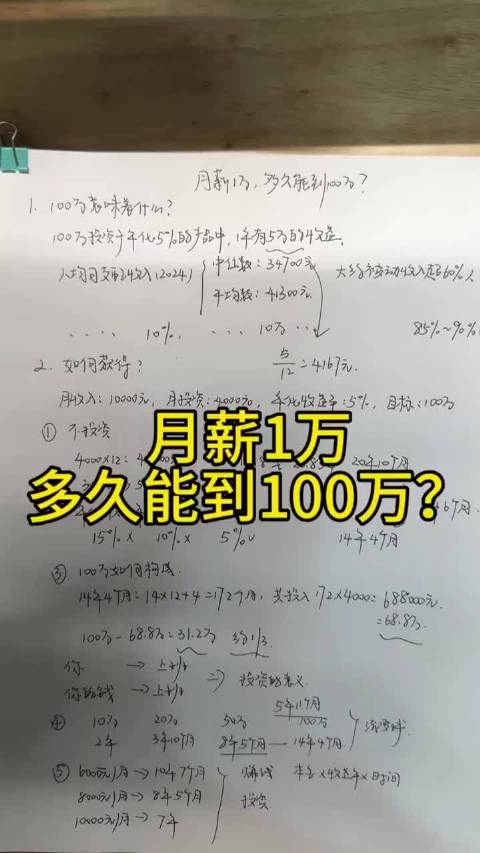 月薪1万，多久能到100万？
1. 100万意味着什么？
100万投资于年化5%的产品中，1年有5万的收益。
人均可支配收入(2024) 中位数：34700元 大约被动收入超60%人
平均数：41300元
.... 10%. 10万 ... 85%~90%
2. 如何获得？ 5/12=4167元.
月收入：10000元，月投资：4000元，年化收益率：5%，目标：100万
① 不投资
4000×12： 20年10个月
月薪1万
多久能到100万？
15%× 10%× 5%√ 14年4个月
③ 100万如何构成.
14年4个月=14×12+4=172个月，共投入172×4000=688000元
=68.8万.
100万-68.8万=31.2万 约1/3
你 → 上班
你的钱 → 上班 ⇒ 投资的意义
5年11个月
④ 10万 20万 50万 100万 滚雪球
2年 3年10个月 8年5个月 — 14年4个月
⑤ 6000元/月→10年7个月 赚钱 本金×收益率×时间
8000元/月→8年5个月 投资
10000元/月→7年